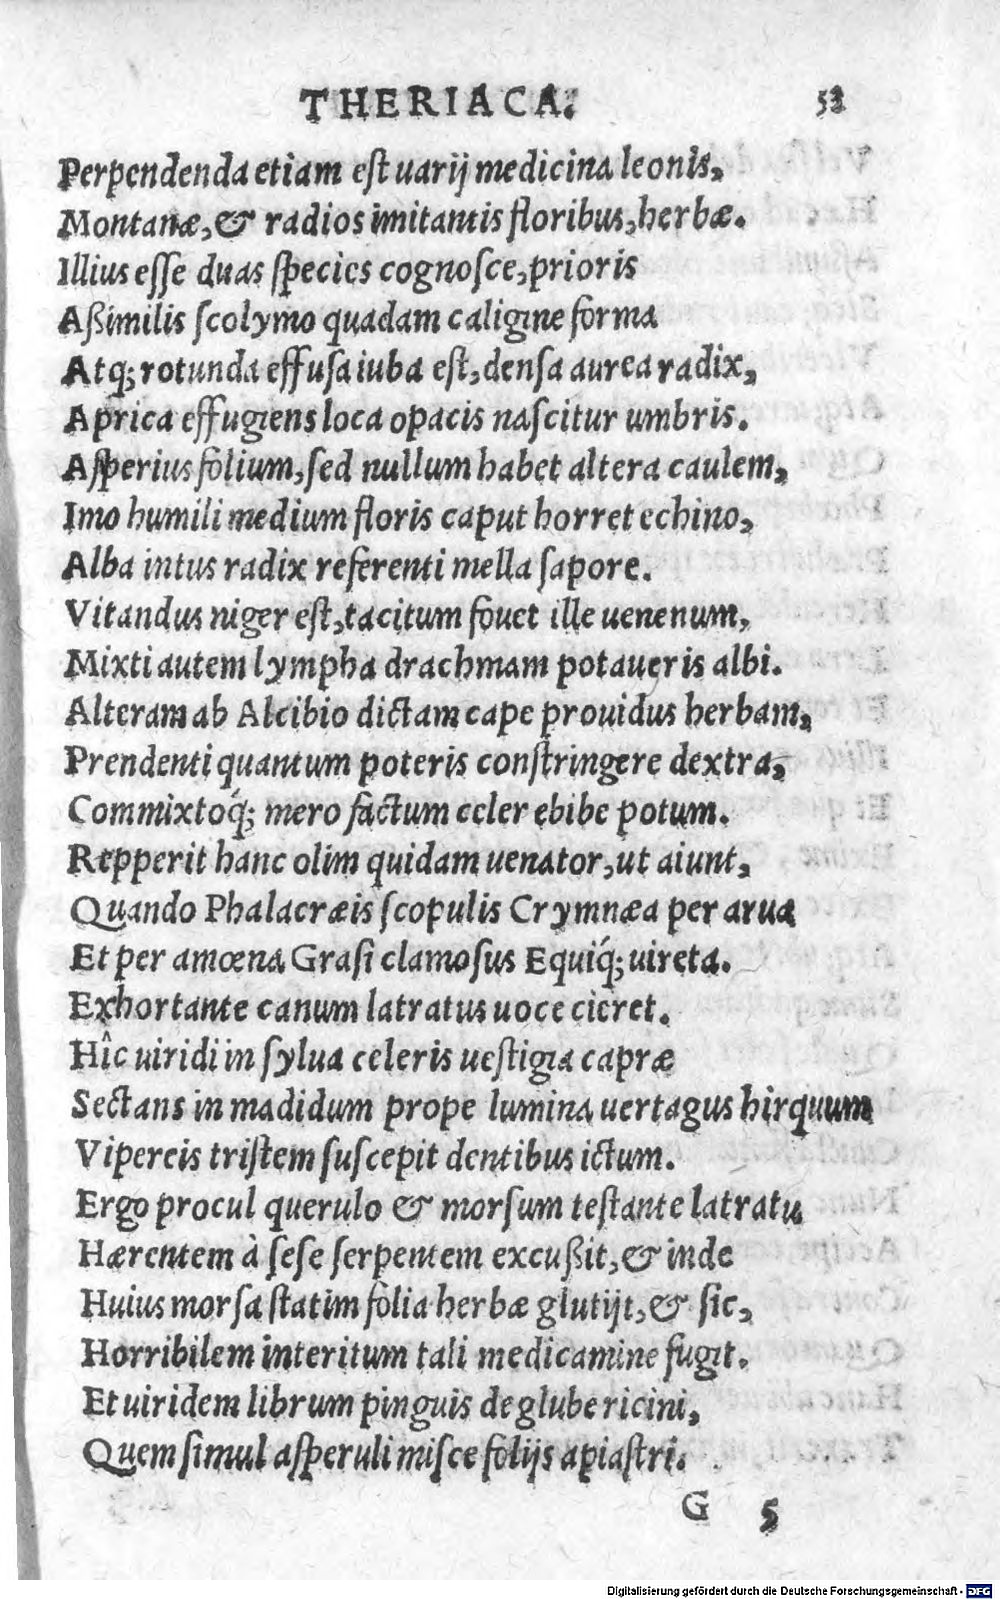 THERIACA. 53
Perpendenda etiam eſt uarij medicina leonis,
Montanæ, & radios imitantis floribus, herbæ.
Illius eſſe duas ſpecies cognoſce, prioris
Aßimilis ſcolymo quadam caligine forma
Atq; rotunda effuſa iuba eſt, denſa aurea radix,
Aprica effugiens loca opacis naſcitur umbris.
Aſperius folium, ſed nullum habet altera caulem,
Imo humili medium floris caput horret echino,
Alba intus radix referenti mella ſapore.
Vitandus niger eſt, tacitum fouet ille uenenum,
Mixti autem lympha drachmam potaueris albi.
Alteram ab Alcibio dictam cape prouidus herbam,
Prendenti quantum poteris conſtringere dextra,
Commixtoq́; mero factum celer ebibe potum.
Repperit hanc olim quidam uenator, ut aiunt,
Quando Phalacræis ſcopulis Crymnæa per arua
Et per amœna Graſi clamoſus Equiq́; uireta.
Exhortante canum latratus uoce cieret.
Hîc uiridi in ſylua celeris ueſtigia capræ
Sectans in madidum prope lumina uertagus hirquum
Vipereis triſtem ſuſcepit dentibus ictum.
Ergo procul querulo & morſum teſtante latratu
Hærentem à ſeſe ſerpentem excußit, & inde
Huius morſa ſtatim folia herbæ glutijt, & ſic,
Horribilem interitum tali medicamine fugit.
Et uiridem librum pinguis deglube ricini,
Quem ſimul aſperuli miſce folijs apiaſtri.
G 5
Digitalisierung gefördert durch die Deutsche Forschungsgemeinschaft - DFG